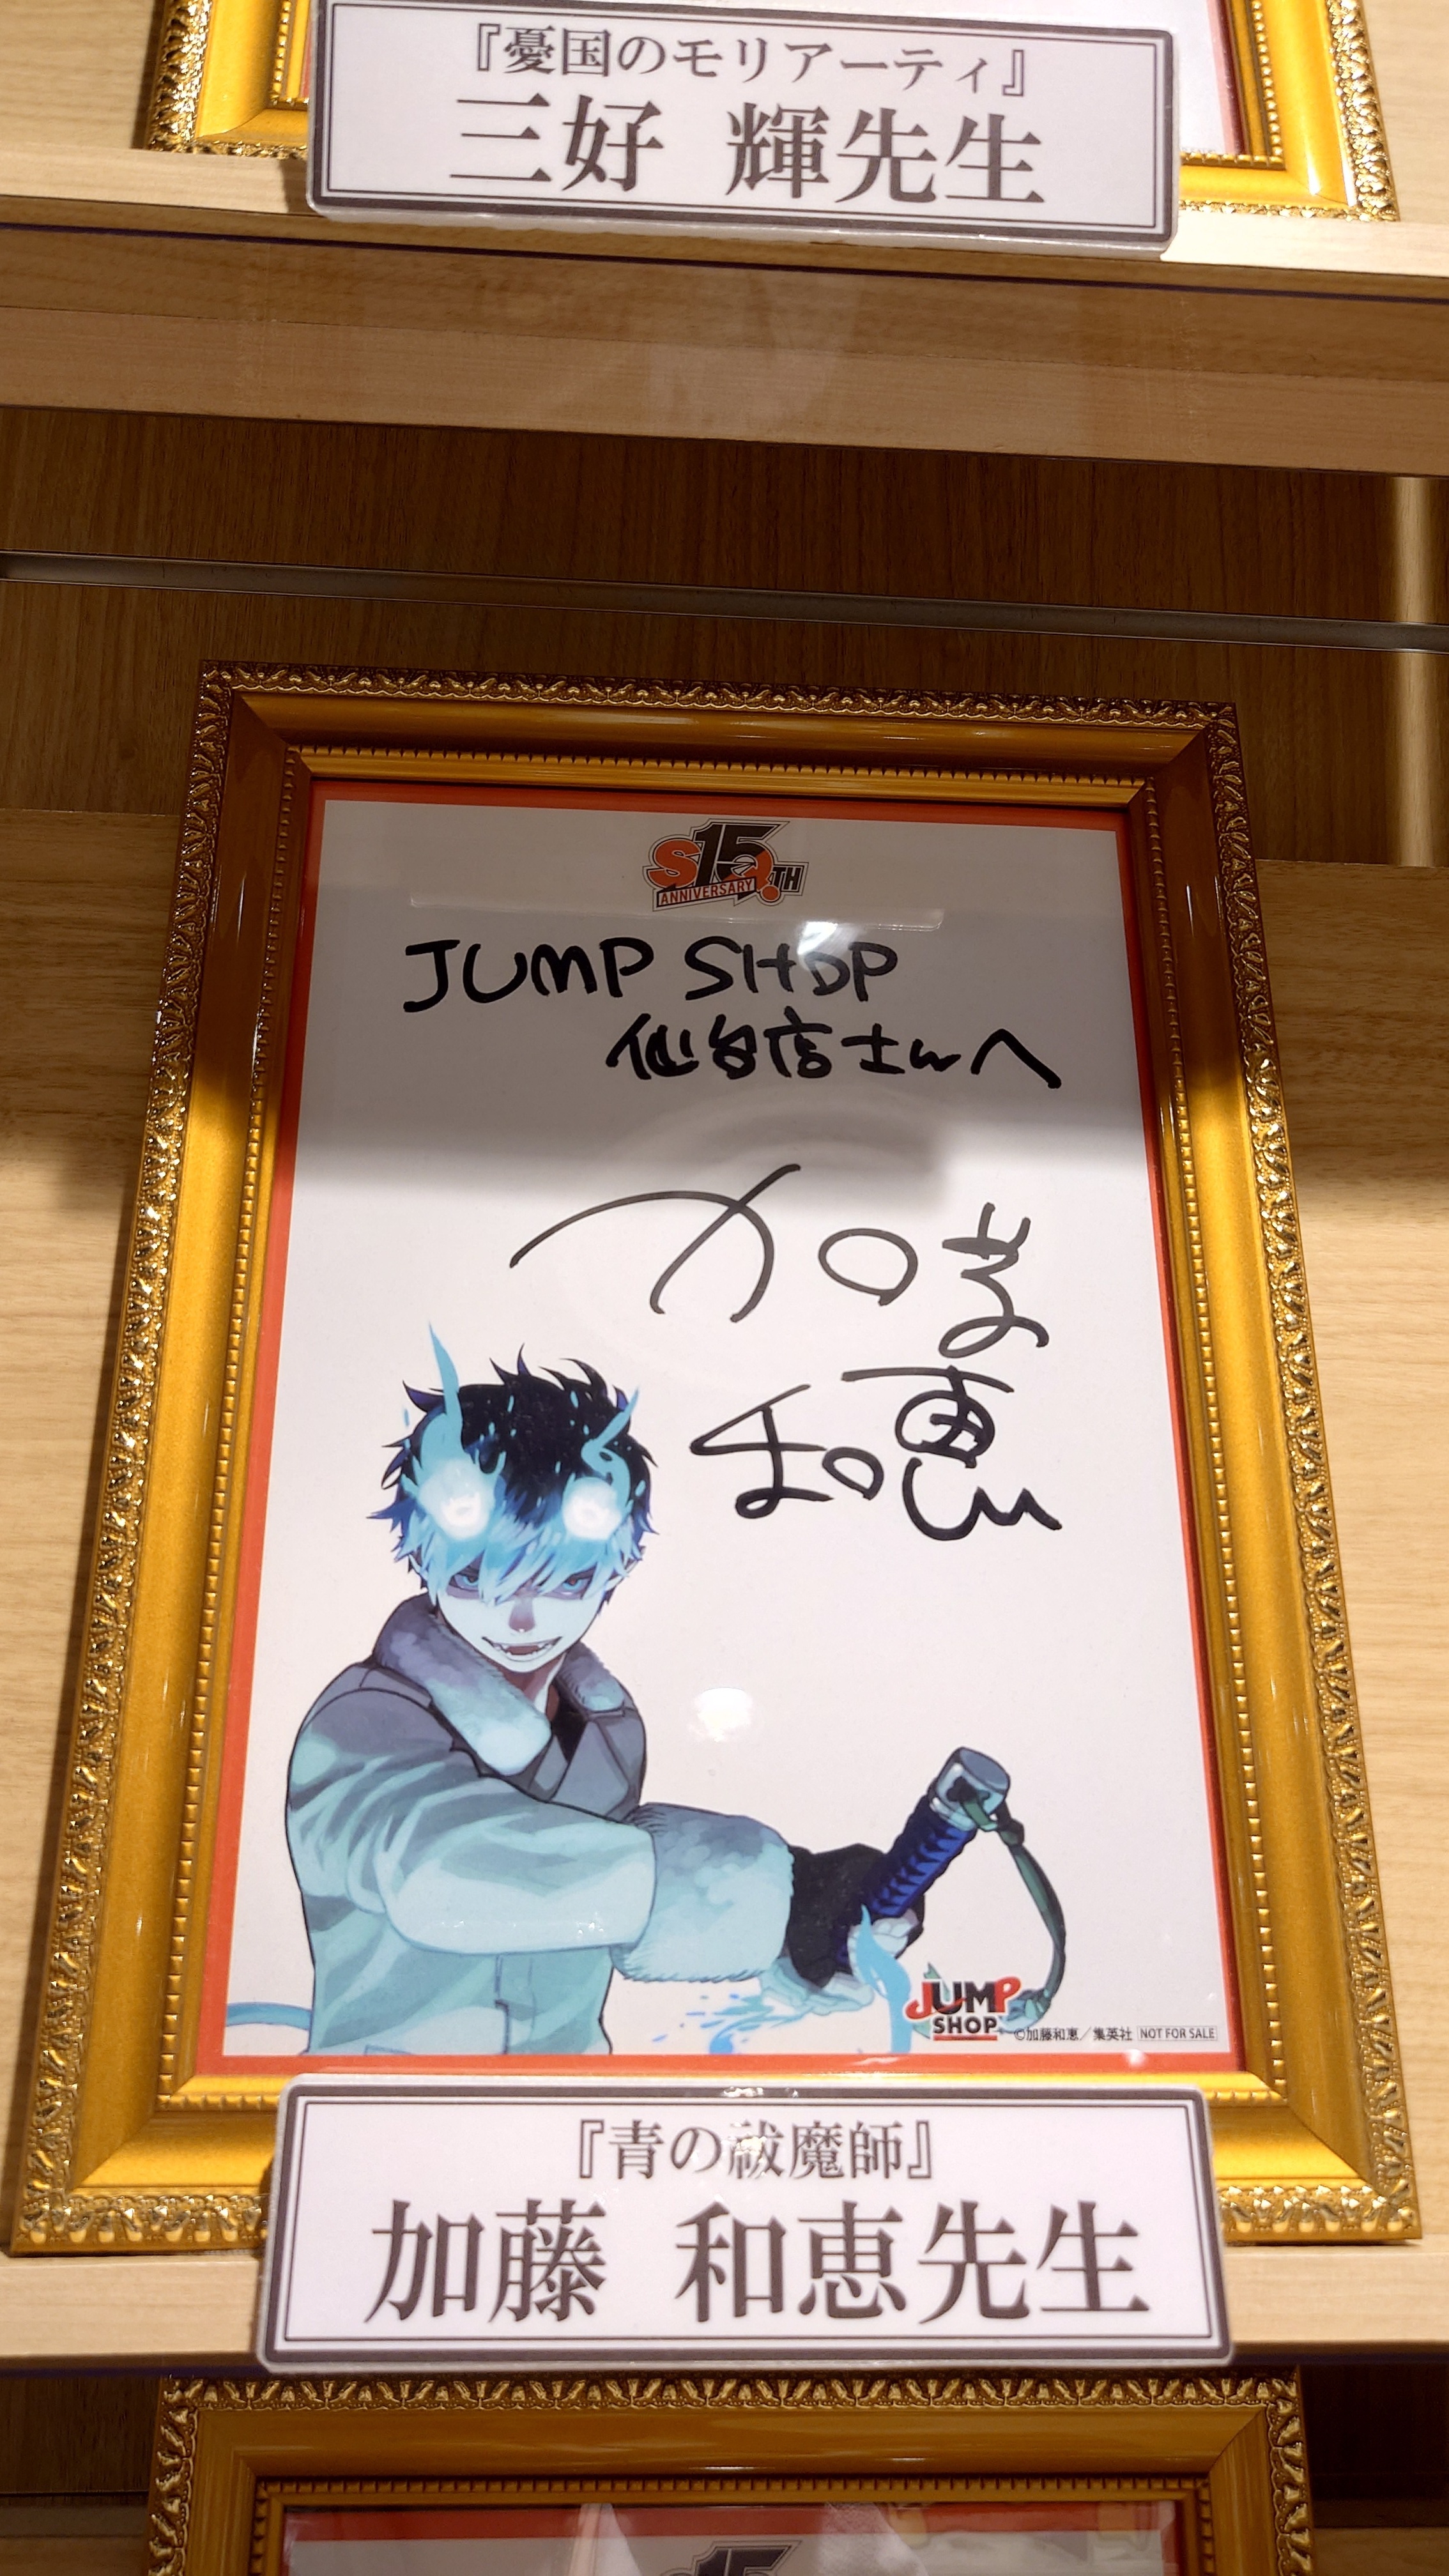 『憂国のモリアーティ』
三好 輝先生
S15Q.TH
ANNIVERSARY
JUMP SHOP
仙台店さんへ
加藤
和恵
JUMP
SHOP
©加藤和恵／集英社 NOT FOR SALE
『青の祓魔師』
加藤 和恵先生
15